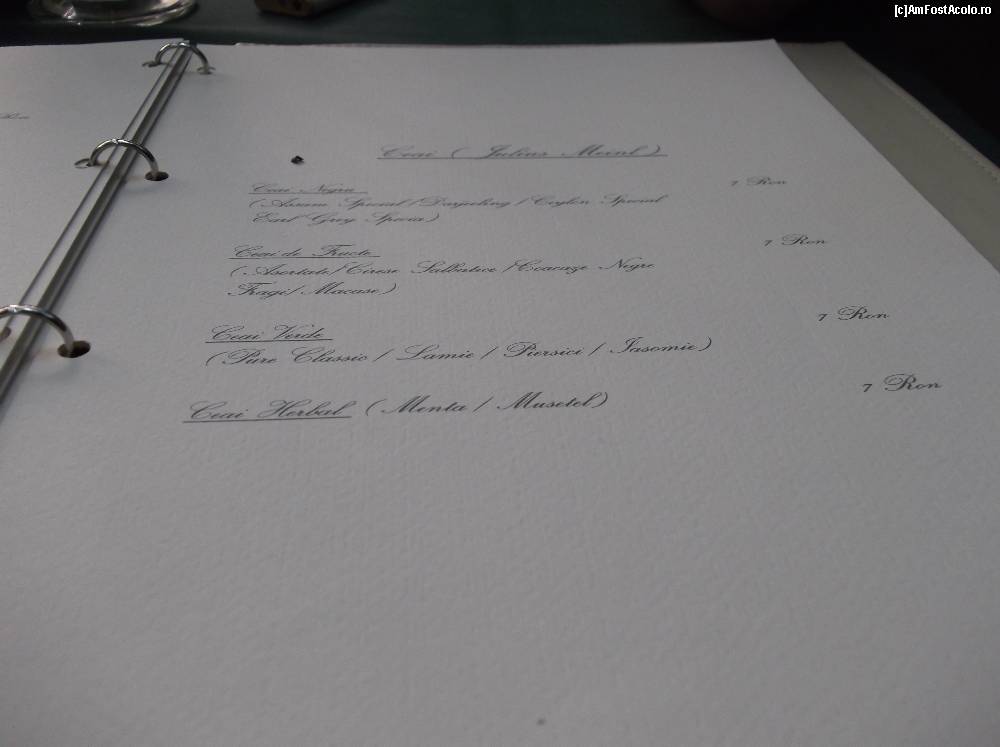 [c]AmFostAcolo.ro
Ceai ( Julius Meinl )
Ceai Negru 7 Ron
(Assam Special / Darjeeling / Ceylon Special
Earl Grey Specia)
Ceai de Fructe 7 Ron
(Asortate/Cirese Salbatice /Coacaze Negre
Fragi/ Macese)
Ceai Verde 7 Ron
(Pure Classic / Lamie / Piersici / Iasomie)
Ceai Herbal (Menta / Musetel) 7 Ron